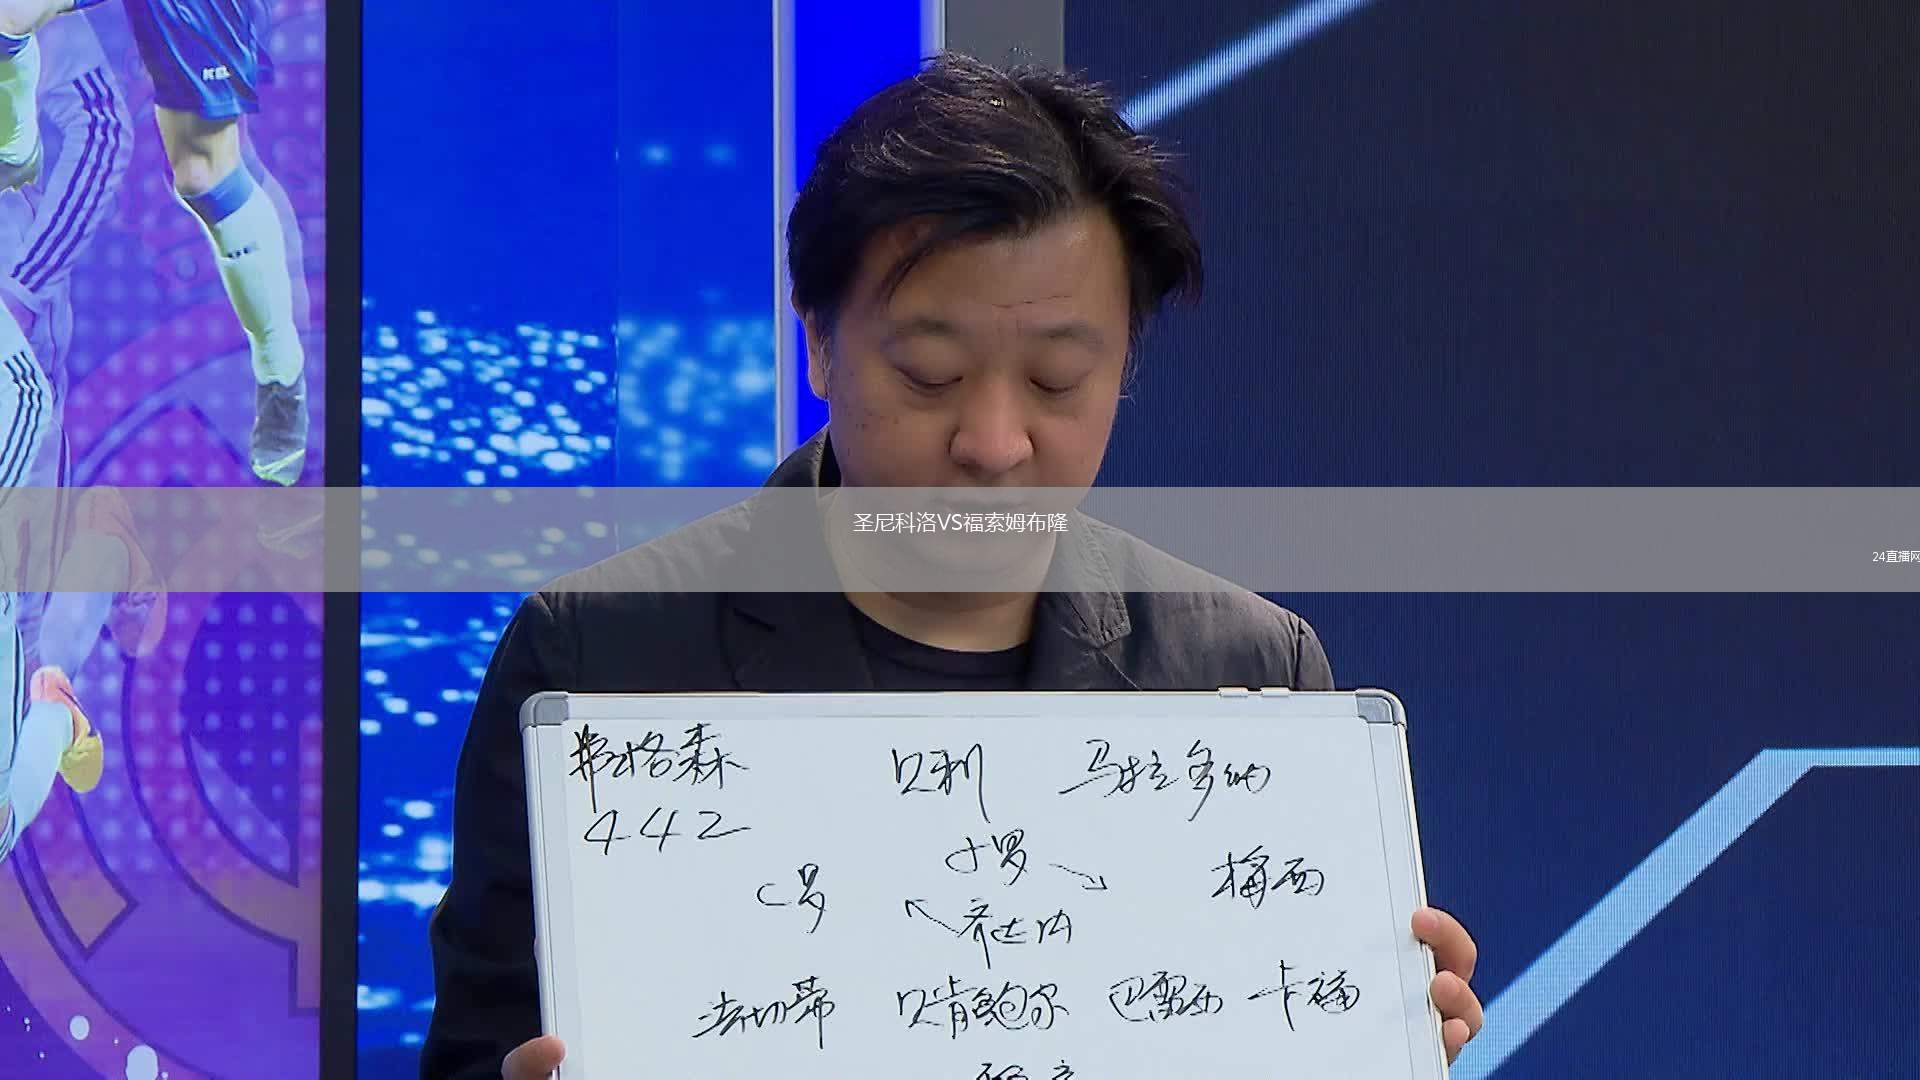 圣尼科洛VS福索姆布隆
24直播网
弗格森 贝利 马拉多纳
442
小罗
C罗 梅西
齐达内
法切蒂 贝肯鲍尔 巴雷西 卡福